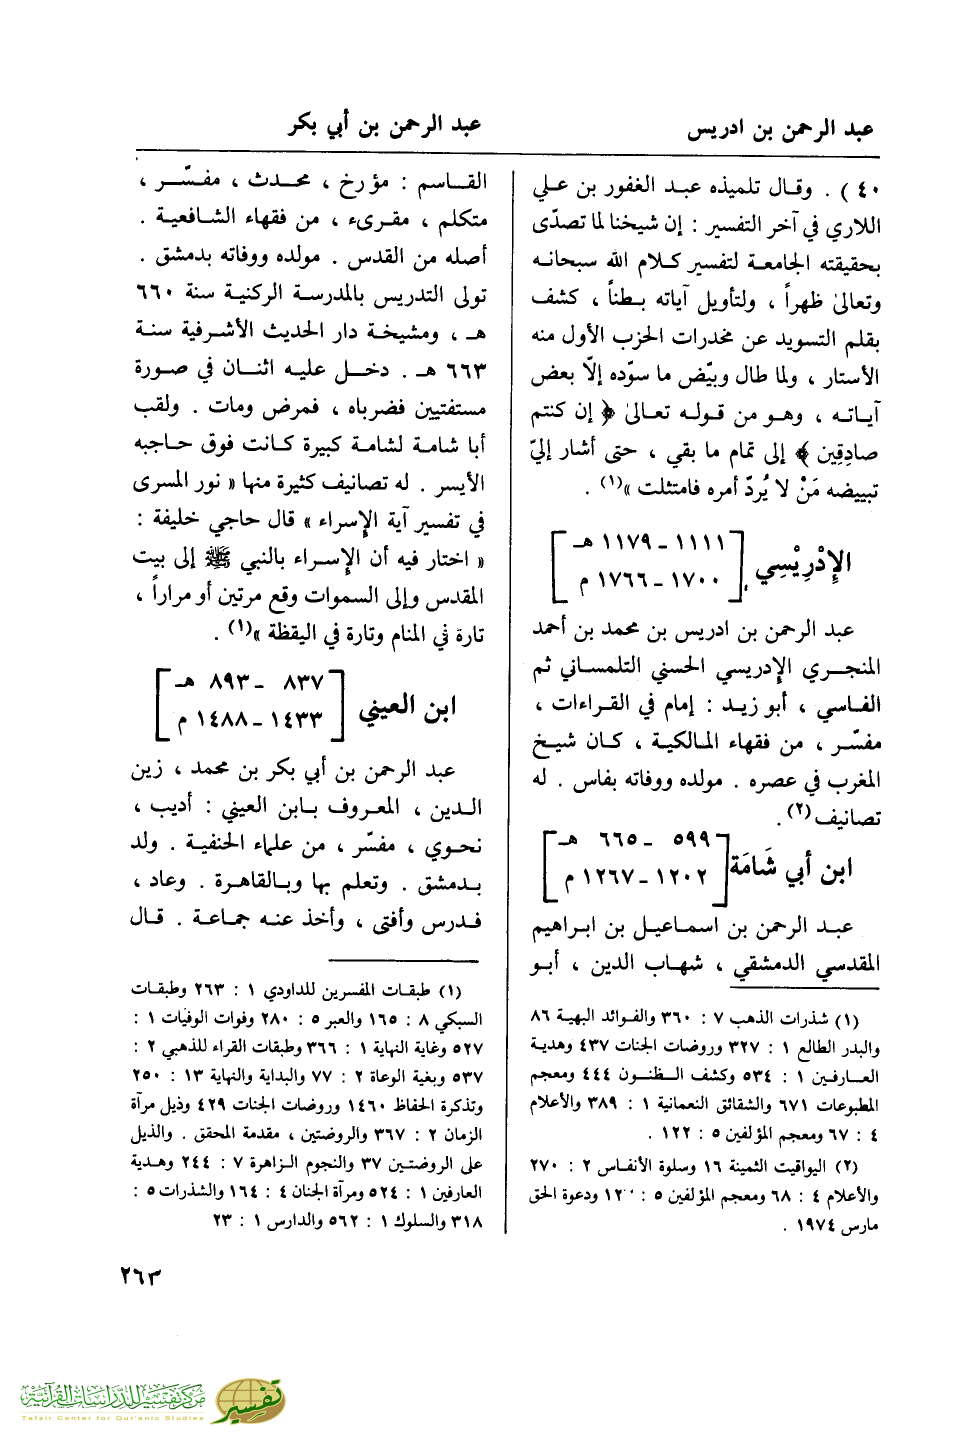 عبد الرحمن بن ادريس
عبد الرحمن بن أبي بكر
٤٠) . وقال تلميذه عبد الغفور بن علي
اللاري في آخر التفسير : إن شيخنا لما تصدّى
بحقيقته الجامعة لتفسير كلام الله سبحانه
وتعالىٰ ظهراً ، ولتأويل آياته بطناً ، كشف
بقلم التسويد عن مخدرات الحزب الأول منه
الأستار ، ولما طال وبيّض ما سوّده إلّا بعض
آياته ، وهو من قوله تعالىٰ ﴿ إن كنتم
صادِقِين ﴾ إلى تمام ما بقي ، حتى أشار إليّ
تبييضه مَنْ لا يُردّ أمره فامتثلت »(١) .
الإِدْرِيْسِي [ ١١١١ - ١١٧٩ هـ
١٧٠٠ - ١٧٦٦ م ]
عبد الرحمن بن ادريس بن محمد بن أحمد
المنجري الإدريسي الحسني التلمساني ثم
الفاسي ، أبو زيد : إمام في القراءات ،
مفسّر ، من فقهاء المالكية ، كان شيخ
المغرب في عصره . مولده ووفاته بفاس . له
تصانيف(٢) .
ابن أبي شَامَة [ ٥٩٩ - ٦٦٥ هـ
١٢٠٢ - ١٢٦٧ م ]
عبد الرحمن بن اسماعيل بن ابراهيم
المقدسي الدمشقي ، شهاب الدين ، أبو
(١) شذرات الذهب ٧ : ٣٦٠ والفوائد البهية ٨٦
والبدر الطالع ١ : ٣٢٧ وروضات الجنات ٤٣٧ وهدية
العارفين ١ : ٥٣٤ وكشف الظنون ٤٤٤ ومعجم
المطبوعات ٦٧١ والشقائق النعمانية ١ : ٣٨٩ والأعلام
٤ : ٦٧ ومعجم المؤلفين ٥ : ١٢٢ .
(٢) اليواقيت الثمينة ١٦ وسلوة الأنفاس ٢ : ٢٧٠
والأعلام ٤ : ٦٨ ومعجم المؤلفين ٥ : ودعوة الحق
مارس ١٩٧٤ .
القاسم : مؤرخ ، محدث ، مفسّر ،
متكلم ، مقرىء ، من فقهاء الشافعية .
أصله من القدس . مولده ووفاته بدمشق .
تولى التدريس بالمدرسة الركنية سنة ٦٦٠
هـ ، ومشيخة دار الحديث الأشرفية سنة
٦٦٣ هـ . دخل عليه اثنان في صورة
مستفتيين فضرباه ، فمرض ومات . ولقب
أبا شامة لشامة كبيرة كانت فوق حاجبه
الأيسر . له تصانيف كثيرة منها « نور المسرى
في تفسير آية الإسراء » قال حاجي خليفة :
« اختار فيه أن الإسراء بالنبي ﷺ إلى بيت
المقدس وإلى السموات وقع مرتين أو مراراً ،
تارة في المنام وتارة في اليقظة »(١) .
ابن العيني [ ٨٣٧ - ٨٩٣ هـ
١٤٣٣ - ١٤٨٨ م ]
عبد الرحمن بن أبي بكر بن محمد ، زين
الدين ، المعروف بابن العيني : أديب ،
نحوي ، مفسّر ، من علماء الحنفية . ولد
بدمشق . وتعلم بها وبالقاهرة . وعاد ،
فدرس وأفتى ، وأخذ عنه جماعة . قال
(١) طبقات المفسرين للداودي ١ : ٢٦٣ وطبقات
السبكي ٨ : ١٦٥ والعبر ٥ : ٢٨٠ وفوات الوفيات ١ :
٥٢٧ وغاية النهاية ١ : ٣٦٦ وطبقات القراء للذهبي ٢ :
٥٣٧ وبغية الوعاة ٢ : ٧٧ والبداية والنهاية ١٣ : ٢٥٠
وتذكرة الحفاظ ١٤٦٠ وروضات الجنات ٤٢٩ وذيل مرآة
الزمان ٢ : ٣٦٧ والروضتين ، مقدمة المحقق . والذيل
على الروضتين ٣٧ والنجوم الزاهرة ٧ : ٢٤٤ وهدية
العارفين ١ : ٥٢٤ ومرآة الجنان ٤ : ١٦٤ والشذرات ٥ :
٣١٨ والسلوك ١ : ٥٦٢ والدارس ١ : ٢٣
٢٦٣
مركز تفسير للدراسات القرآنية
Tafsir Center for Qur'anic Studies
تفسير